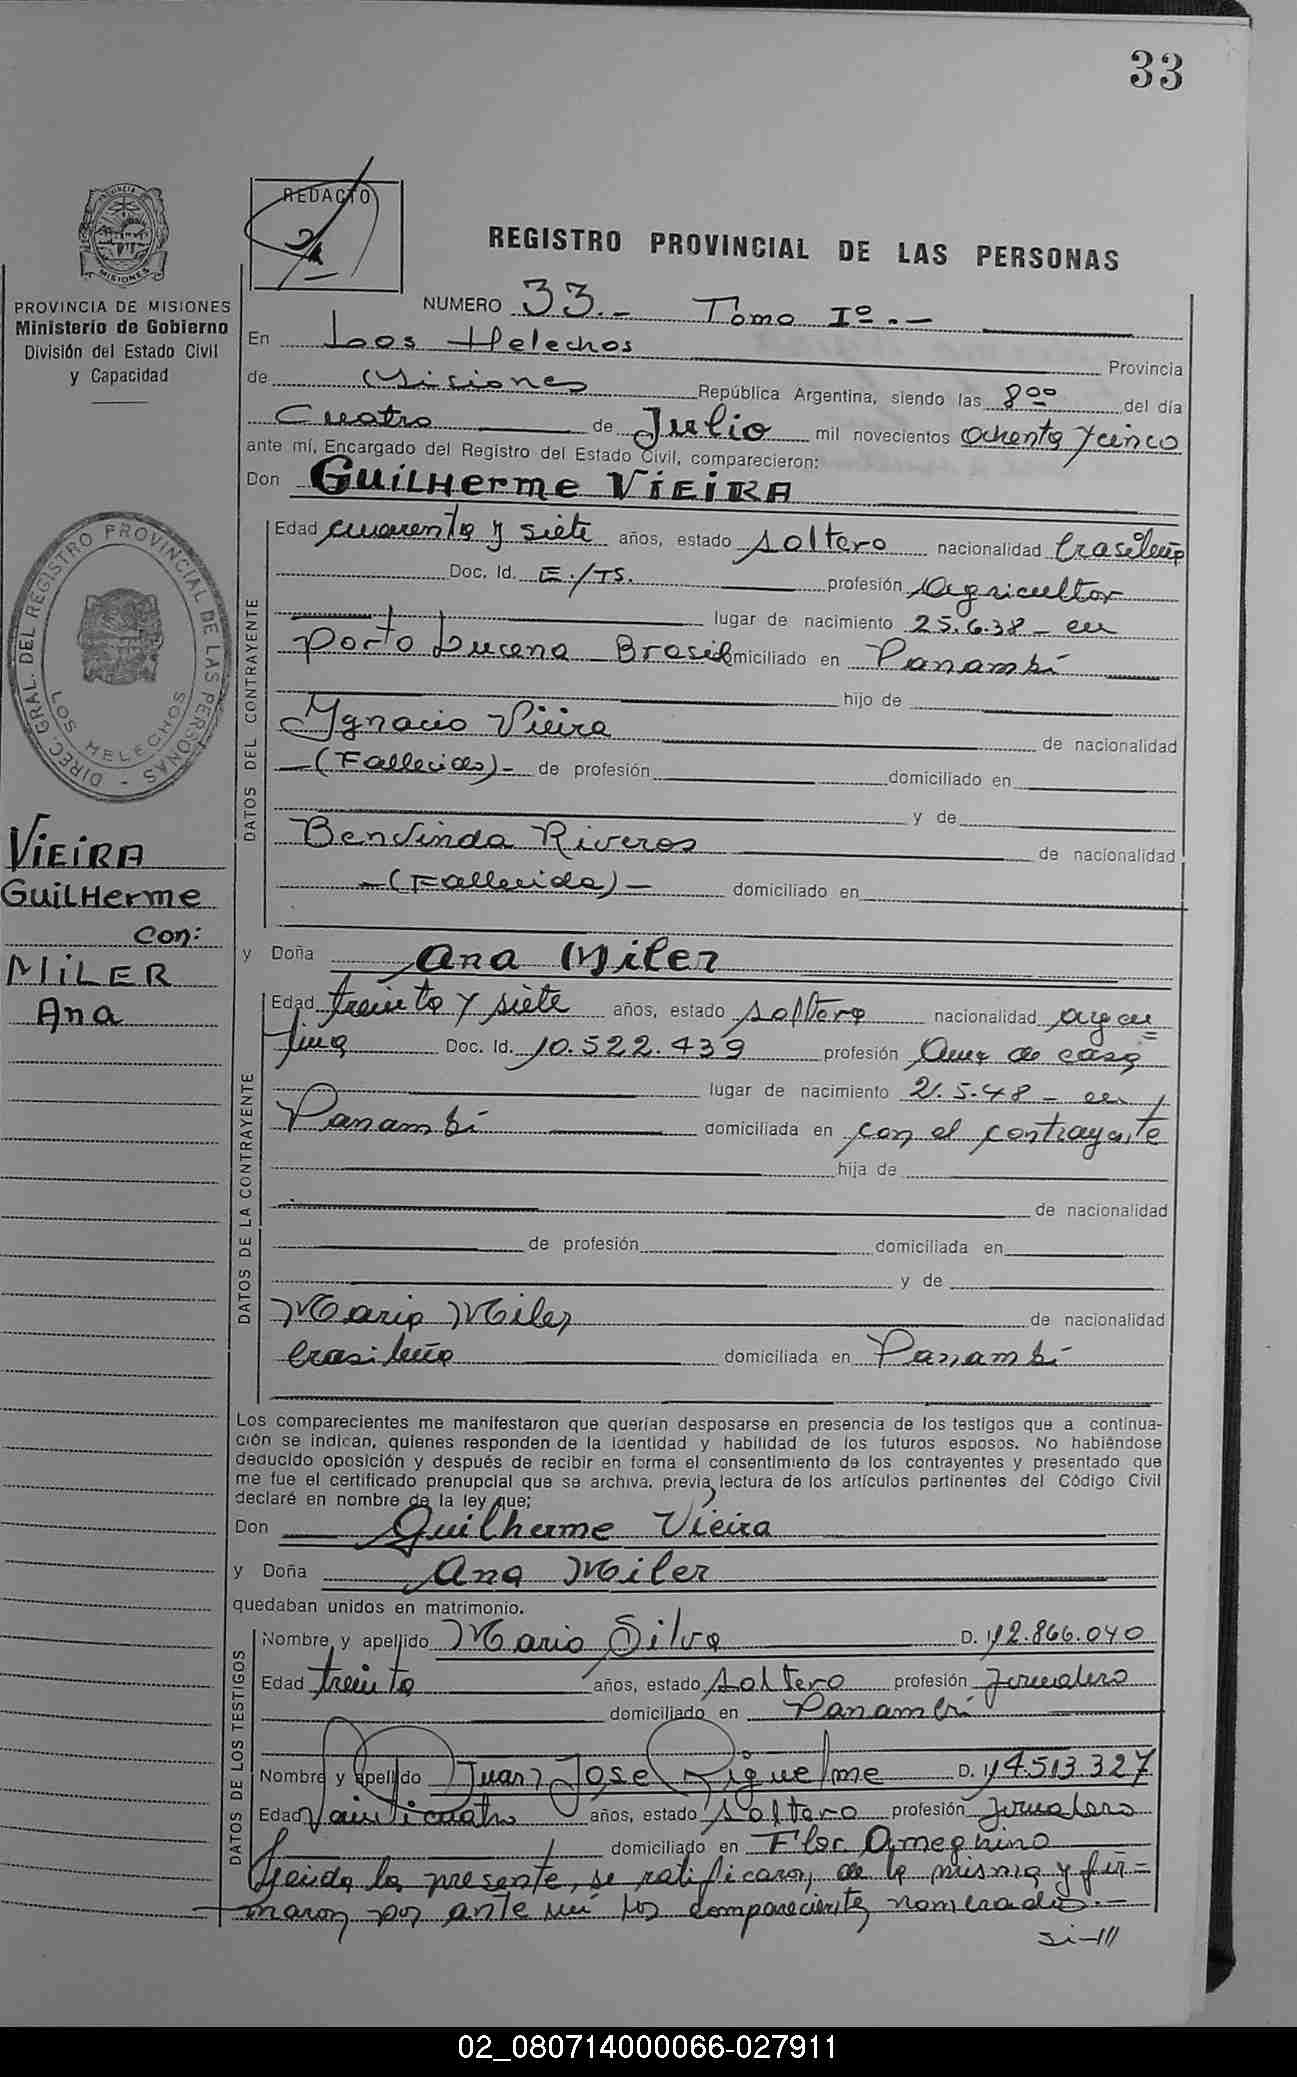 33
REDACTO
REGISTRO PROVINCIAL DE LAS PERSONAS
PROVINCIA DE MISIONES
Ministerio de Gobierno
División del Estado Civil
y Capacidad
NUMERO 33.- Tomo Iº.-
En Los Helechos Provincia
de Misiones República Argentina, siendo las 8ºº del día
Cuatro de Julio mil novecientos ochenta y cinco
ante mí, Encargado del Registro del Estado Civil, comparecieron:
Don GUILHerme VIEIRA
DATOS DEL CONTRAYENTE
Edad cuarenta y siete años, estado soltero nacionalidad brasileño
Doc. Id. E./TS. profesión agricultor
lugar de nacimiento 25.6.38 - en
Porto Lucena - Brasil domiciliado en Panambí
hijo de
Ygnacio Vieira de nacionalidad
-(Fallecido)- de profesión domiciliado en
y de
Benvinda Riveros de nacionalidad
-(Fallecida)- domiciliado en
DIREC. GRAL. DEL REGISTRO PROVINCIAL DE LAS PERSONAS -
LOS HELECHOS
VIEIRA
GUILHerme
con:
MILER
Ana
y Doña Ana Miler
DATOS DE LA CONTRAYENTE
Edad treinta y siete años, estado soltera nacionalidad argen=
tina Doc. Id. 10.522.439 profesión Ama de casa
lugar de nacimiento 21.5.48 - en
Panambí domiciliada en con el contrayente
hija de
de nacionalidad
de profesión domiciliada en
y de
Maria Miler de nacionalidad
brasileña domiciliada en Panambí
Los comparecientes me manifestaron que querían desposarse en presencia de los testigos que a continua-
ción se indican, quienes responden de la identidad y habilidad de los futuros esposos. No habiéndose
deducido oposición y después de recibir en forma el consentimiento de los contrayentes y presentado que
me fue el certificado prenupcial que se archiva, previa lectura de los artículos pertinentes del Código Civil
declaré en nombre de la ley que;
Don Guilherme Vieira
y Doña Ana Miler
quedaban unidos en matrimonio.
DATOS DE LOS TESTIGOS
Nombre y apellido Mario Silva D. 12.866.040
Edad treinta años, estado soltero profesión Jornalero
domiciliado en Panambí
Nombre y apellido Juan Jose Riquelme D. 14.513.327
Edad Veinticuatro años, estado soltero profesión Jornalero
domiciliado en Flor. Ameghino
Leida la presente, se ratificaron de la misma y fir=
maron por ante mí los comparecientes nombrados.-
si-///
02_080714000066-027911